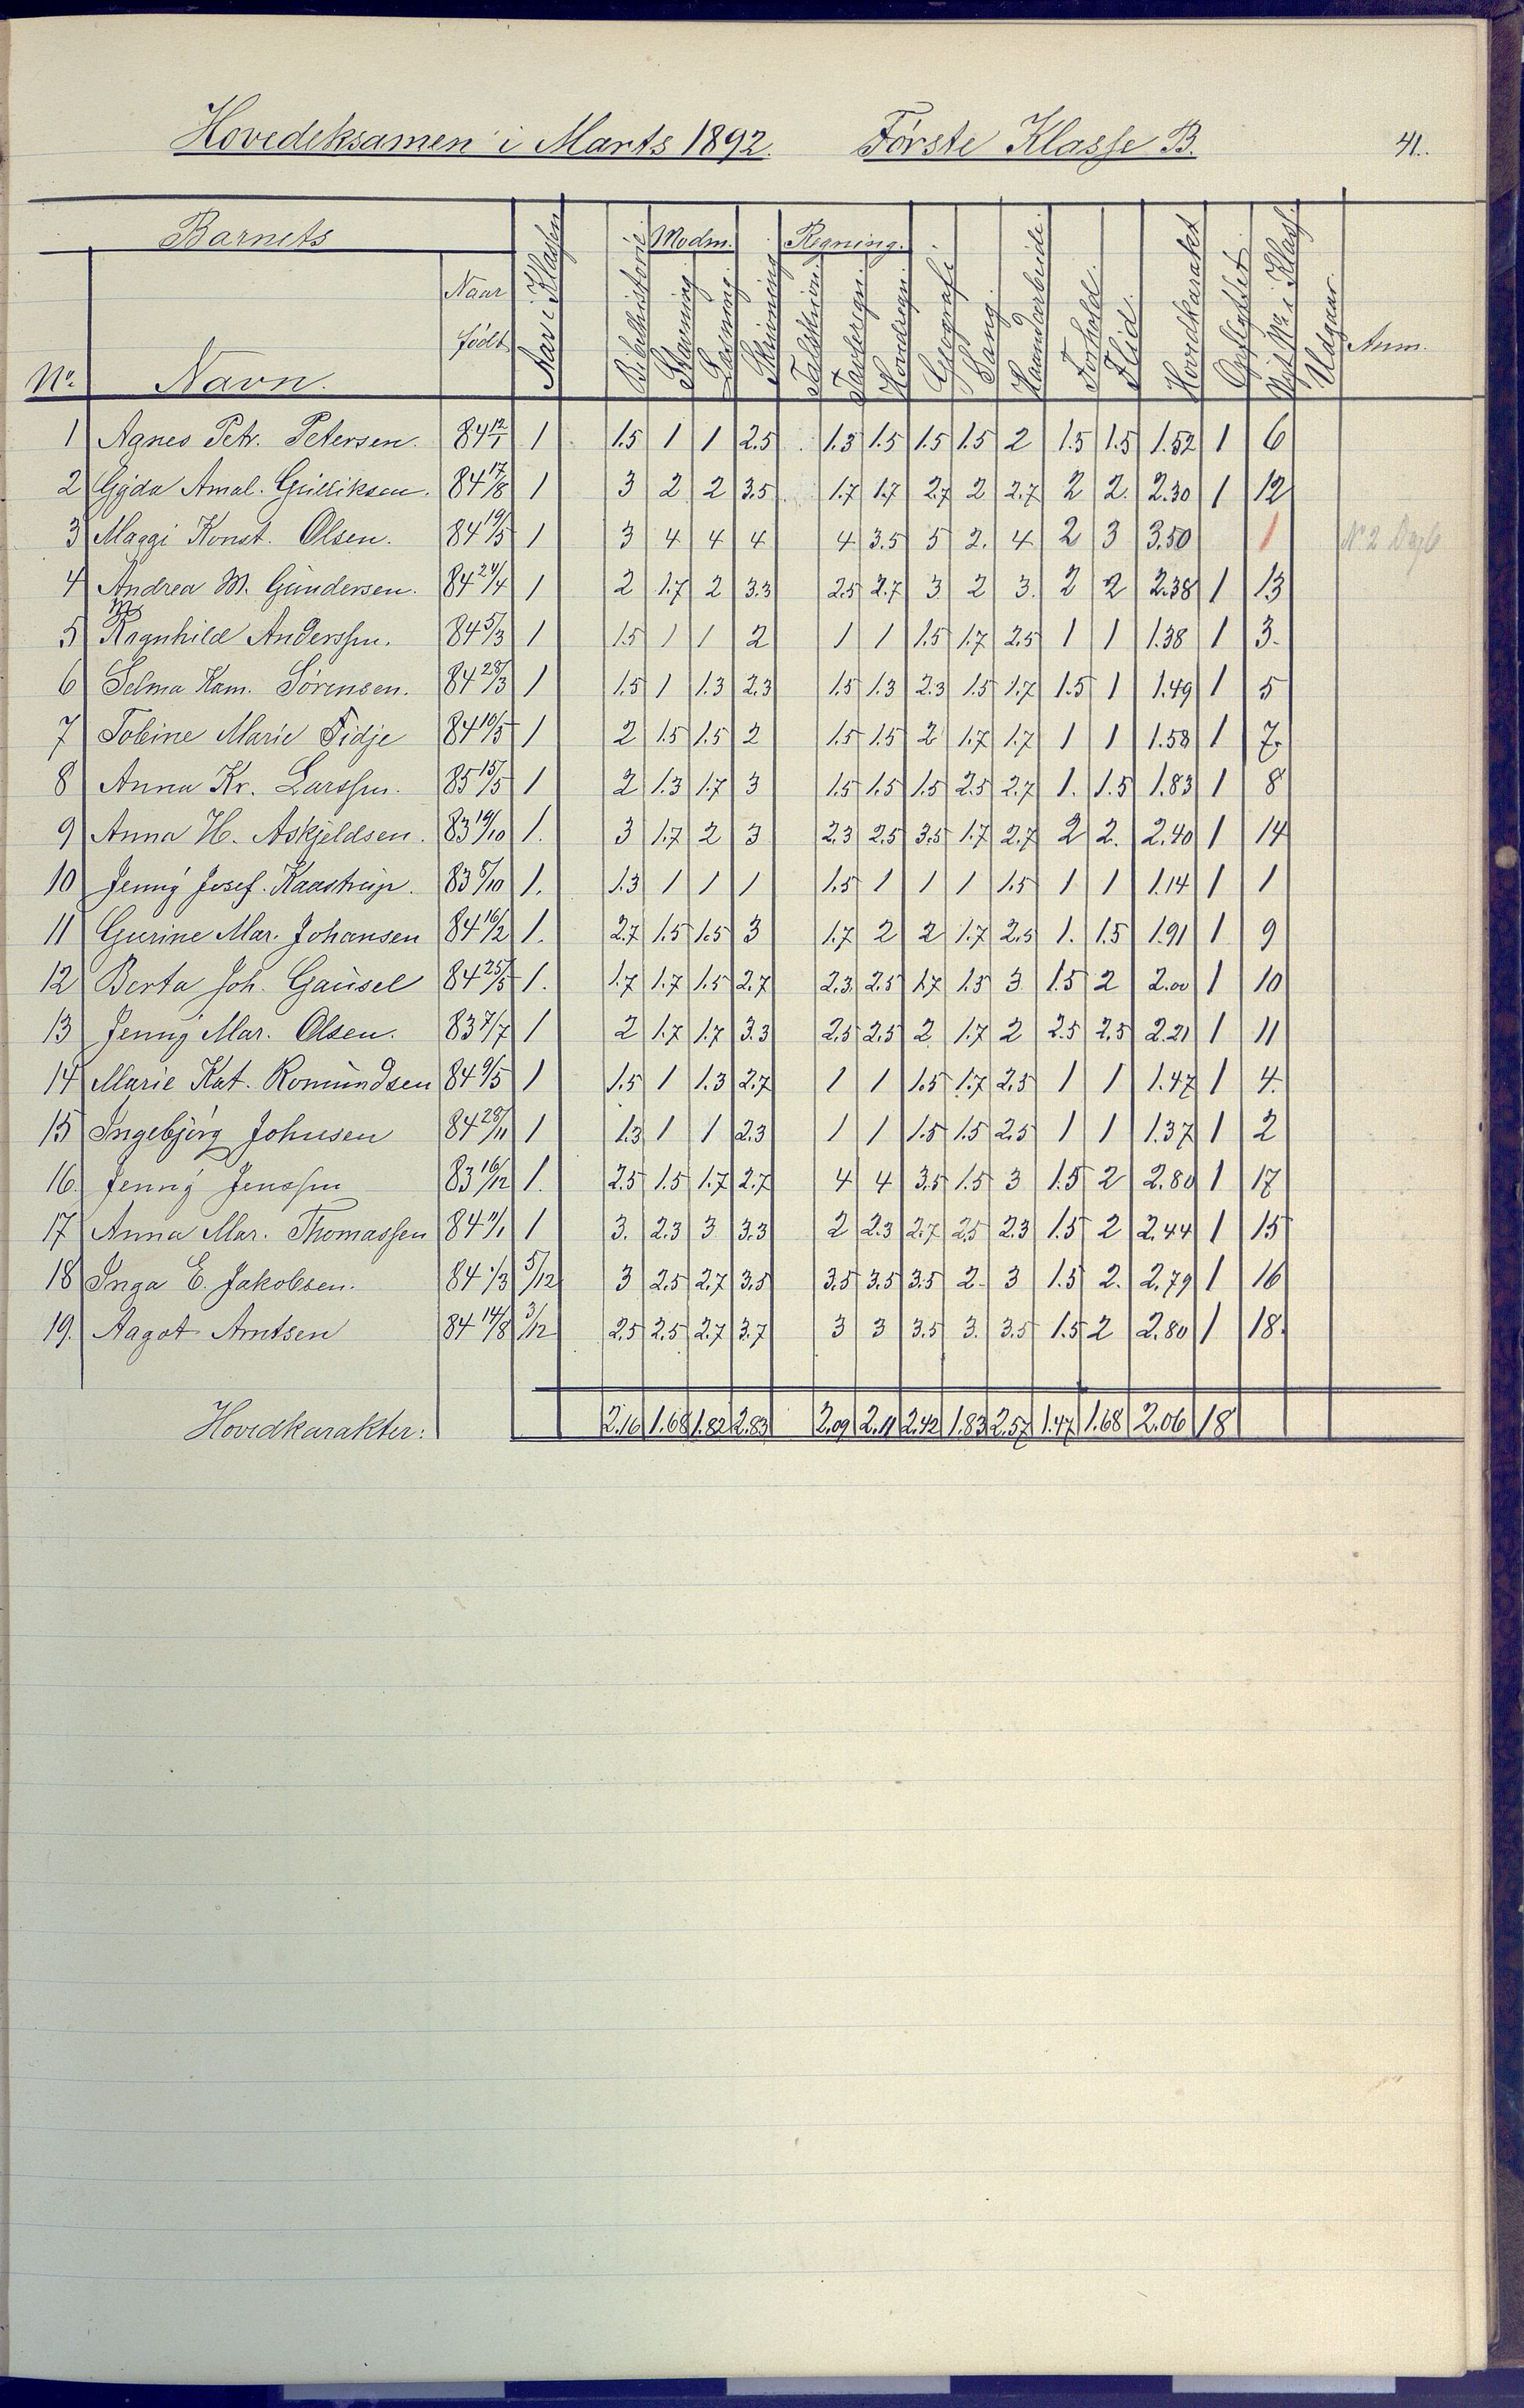 Hovedeksamen i Marts 1892. Første Klasse B. 41.
Barnets Modm. Regning.
No. Navn. Naar født Aar i Klassen Bibelhistorie Stavning Læsning Skrivning Talskrivn. Tavleregn. Hovedregn. Geografi Sang. Haandarbeide Forhold. Flid. Hovedkarakt Opflyttet Nyt Nr. i Klass. Udgaar. Anm.
1 Agnes Petr. Petersen. 84 12/1 1 1.5 1 1 2.5 1.3 1.5 1.5 1.5 2 1.5 1.5 1.52 1 6
2 Gyda Amal. Gulliksen. 84 17/8 1 3 2 2 3.5 1.7 1.7 2.7 2 2.7 2 2. 2.30 1 12
3 Maggi Konst. Olsen. 84 19/5 1 3 4 4 4 4 3.5 5 2. 4 2 3 3.50 1 No 2
4 Andrea M. Gundersen. 84 24/4 1 2 1.7 2 3.3 2.5 2.7 3 2 3. 2 2 2.38 1 13
5 Ragnhild Anderssen. 84 5/3 1 1.5 1 1 2 1 1 1.5 1.7 2.5 1 1 1.38 1 3.
6 Selma Kam. Sørensen. 84 28/3 1 1.5 1 1.3 2.3 1.5 1.3 2.3 1.5 1.7 1.5 1 1.49 1 5
7 Tobine Marie Tidje 84 10/5 1 2 1.5 1.5 2 1.5 1.5 2 1.7 1.7 1 1 1.58 1 7.
8 Anna Kr. Larssen. 85 15/5 1 2 1.3 1.7 3 1.5 1.5 1.5 2.5 2.7 1. 1.5 1.83 1 8
9 Anna H. Askjeldsen. 83 19/10 1. 3 1.7 2 3 2.3 2.5 3.5 1.7 2.7 2 2. 2.40 1 14
10 Jenny Josef. Kaastrup. 83 5/10 1. 1.3 1 1 1 1.5 1 1 1 1.5 1 1 1.14 1 1
11 Gurine Mar. Johansen 84 16/2 1. 2.7 1.5 1.5 3 1.7 2 2 1.7 2.5 1. 1.5 1.91 1 9
12 Berta Joh. Gausel 84 25/5 1. 1.7 1.7 1.5 2.7 2.3 2.5 1.7 1.5 3 1.5 2 2.00 1 10
13 Jenny Mar. Olsen. 83 7/7 1 2 1.7 1.7 3.3 2.5 2.5 2 1.7 2 2.5 2.5 2.21 1 11
14 Marie Kat. Romundsen 84 9/5 1 1.5 1 1.3 2.7 1 1 1.5 1.7 2.5 1 1 1.47 1 4.
15 Ingebjørg Johnsen 84 28/11 1 1.3 1 1 2.3 1 1 1.5 1.5 2.5 1 1 1.37 1 2
16. Jenny Jenssen 83 16/12 1. 2.5 1.5 1.7 2.7 4 4 3.5 1.5 3 1.5 2 2.80 1 17
17 Anna Mar. Thomassen 84 11/1 1 3. 2.3 3 3.3 2 2.3 2.7 2.5 2.3 1.5 2 2.44 1 15
18 Inga E. Jakobsen. 84 1/3 5/12 3 2.5 2.7 3.5 3.5 3.5 3.5 2 3 1.5 2. 2.79 1 16
19. Aagot Arntsen 84 14/8 3/12 2.5 2.5 2.7 3.7 3 3 3.5 3. 3.5 1.5 2 2.80 1 18.
Hovedkarakter: 2.16 1.68 1.82 2.83 2.09 2.11 2.42 1.83 2.57 1.47 1.68 2.06 18